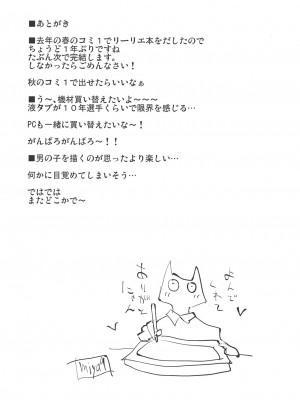 ■あとがき
■去年の春のコミ1でリーリエ本をだしたので
ちょうど1年ぶりですね
たぶん次で完結します。
しなかったらごめんなさい!
秋のコミ1で出せたらいいなぁ
■う~、機材買い替えたいよ~~~
液タブが10年選手くらいで限界を感じる…
PCも一緒に買い替えたいな~!
がんばろがんばろ~!!
■男の子を描くのが思ったより楽しい…
何かに目覚めてしまいそう…
ではでは
またどこかで~
よんで
くれて
ありがと
にゃん